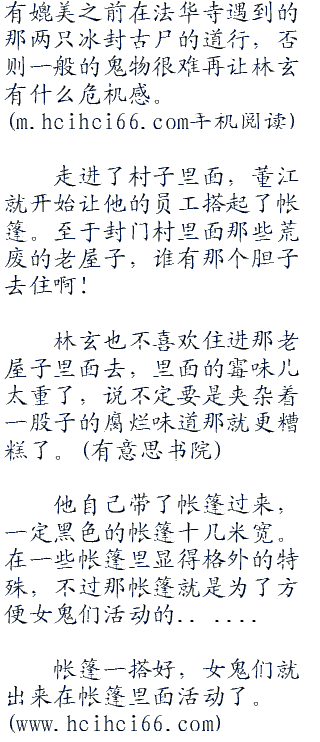 有媲美之前在法华寺遇到的
那两只冰封古尸的道行，否
则一般的鬼物很难再让林玄
有什么危机感。
(m.hcihci66.com手机阅读)
走进了村子里面，董江
就开始让他的员工搭起了帐
篷。至于封门村里面那些荒
废的老屋子，谁有那个胆子
去住啊！
林玄也不喜欢住进那老
屋子里面去，里面的霉味儿
太重了，说不定要是夹杂着
一股子的腐烂味道那就更糟
糕了。(有意思书院)
他自己带了帐篷过来，
一定黑色的帐篷十几米宽。
在一些帐篷里显得格外的特
殊，不过那帐篷就是为了方
便女鬼们活动的.. ....
帐篷一搭好，女鬼们就
出来在帐篷里面活动了。
(www.hcihci66.com)